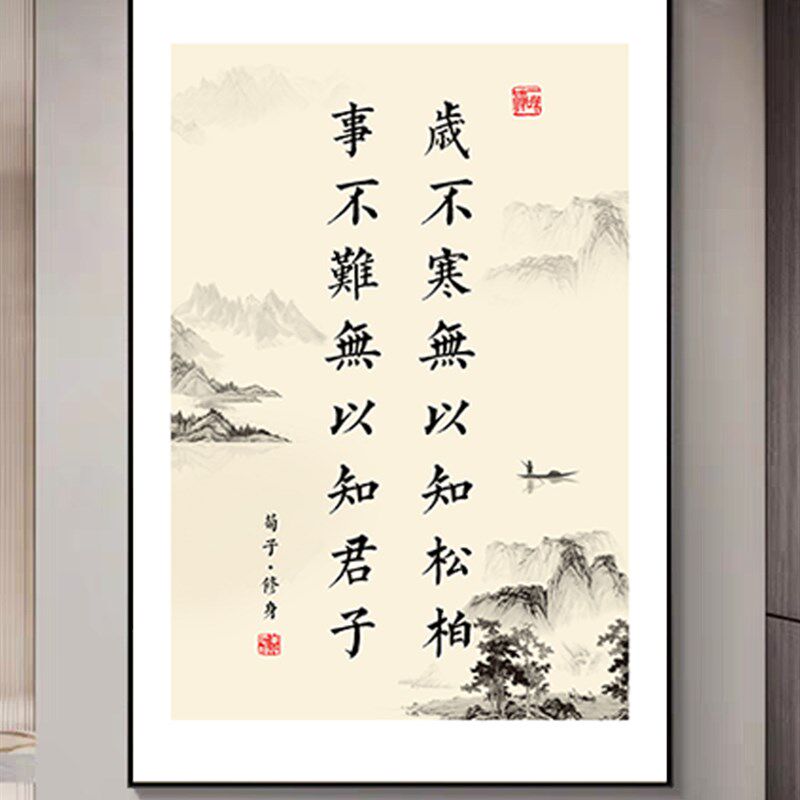 歲不寒無以知松柏
事不難無以知君子
荀子·修身